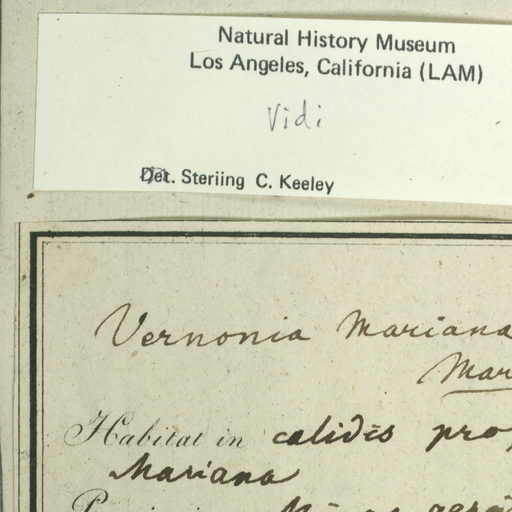 Natural History Museum
Los Angeles, California (LAM)
Vidi
Det. Steriing C. Keeley
Vernonia Mariana
Mar
Habitat in calidis pro
Mariana